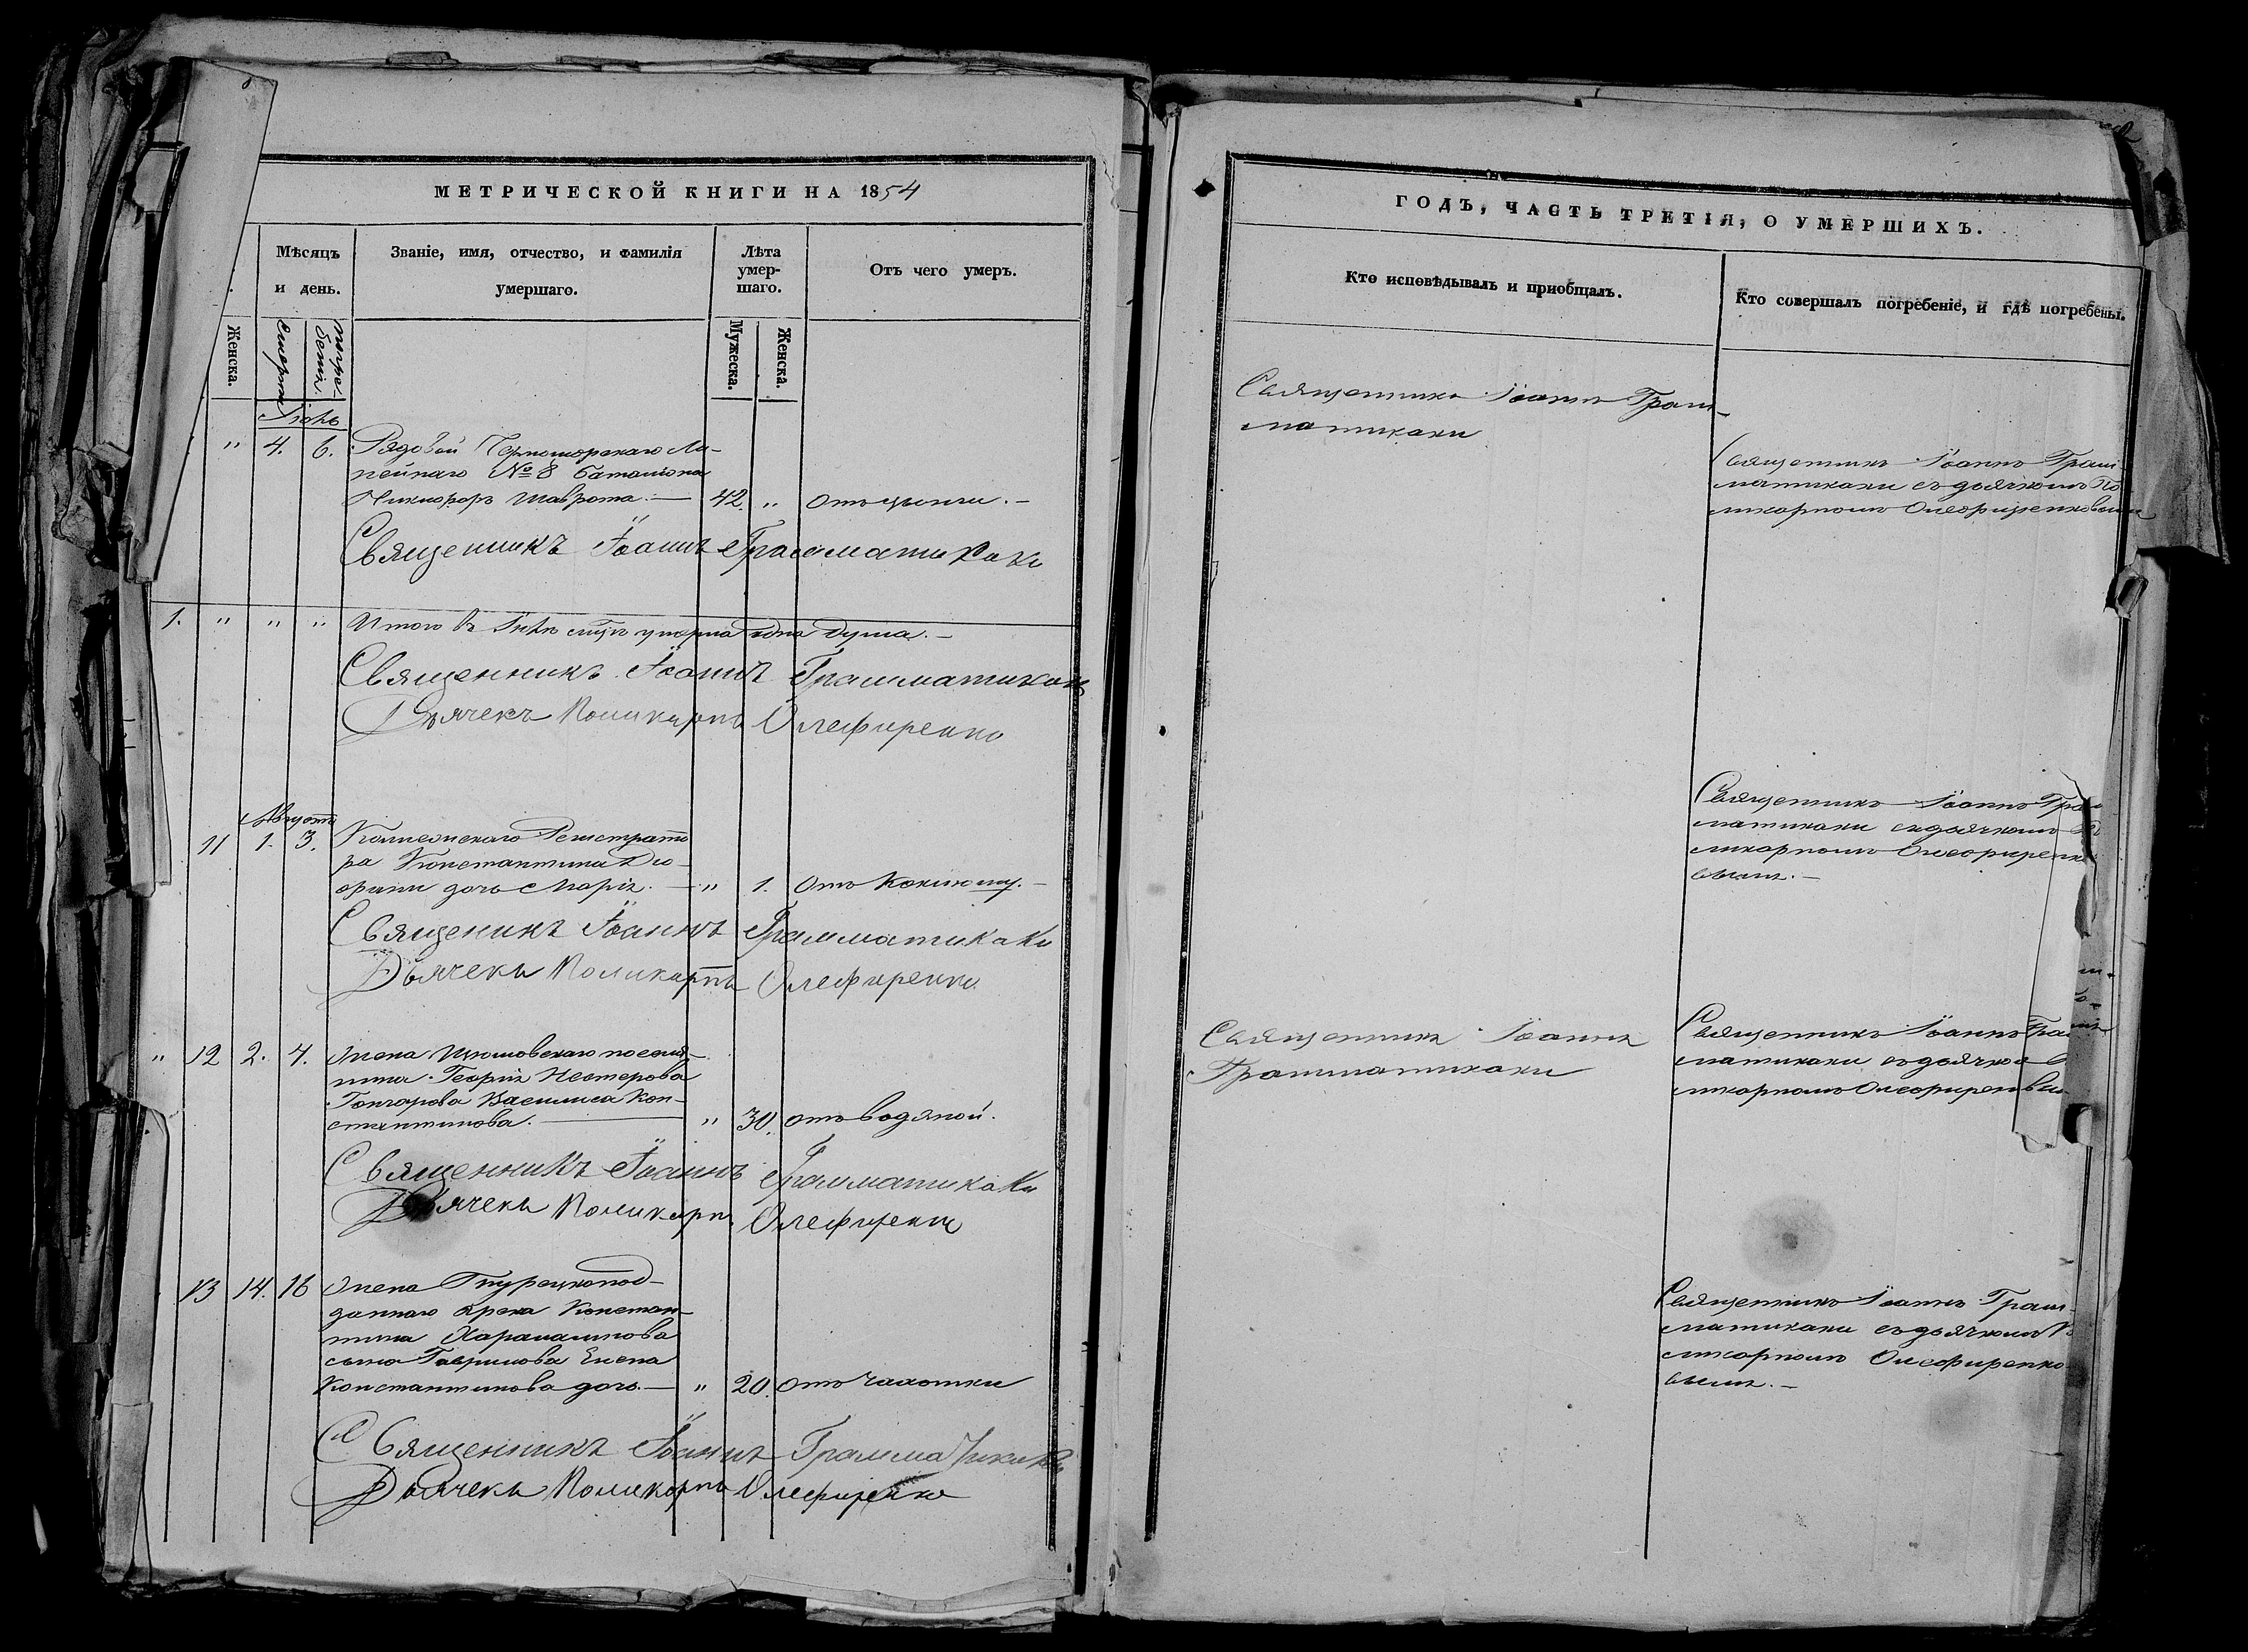 МЕТРИЧЕСКОЙ КНИГИ НА 1854
Мѣсяцъ и день.
Званіе, имя, отчество, и фамилія умершаго.
Лѣта умер-
шаго.
Отъ чего умеръ.
Женска.
Смерти
Погре-
бенія.
Мужеска.
Женска.
" 4. 6. Рядовой Черноморскаго Ли-
нейнаго № 8 баталіона
Никифоръ 42. " отъ цынги. –
Священникъ Іоаннъ Грамматикаки
1. " " " Итого въ умерла одна душа. –
Священникъ Іоаннъ Грамматикаки
Дьячекъ Поликарпъ Олефиренко
Августъ
11 1. 3. Коллежскаго Регистрато
ра Константина
дочь Марія. – " 1. отъ –
Священикъ Іоаннъ Грамматикаки
Дьячекъ Поликарпъ Олефиренко
" 12 2. 4. Жена поселя-
нина Георгія Нестерова
Гончарова Василиса Кон-
стантинова. – " 30. отъ водяной.
Священникъ Іоаннъ Грамматикаки
Дьячекъ Поликарпъ Олефиренко
13 14. 16 Жена Турецкопод-
даннаго Грека Констан-
тина Харалампова
сына Гаврилова Елена
Константинова дочь. – " 20. отъ чахотки
Священникъ Іоаннъ Грамматикаки
Дьячекъ Поликарпъ Олефиренко
ГОДЪ, ЧАСТЬ ТРЕТІЯ, О УМЕРШИХЪ.
Кто исповѣдывалъ и приобщалъ.
Кто совершалъ погребеніе, и гдѣ погребены.
Священникъ Іоаннъ Грам-
матикаки
Священникъ Іоаннъ Грам
матикаки съ дьячкомъ По
ликарпомъ Олефиренковымъ
Священникъ Іоаннъ Грам
матикаки съ дьячкомъ По
ликарпомъ Олефиренко
вымъ. –
Священникъ Іоаннъ
Грамматикаки
Священникъ Іоаннъ Грам
матикаки съ дьячко
ликарпомъ
Священникъ Іоаннъ Грам-
матикаки съ дьячкомъ По
ликарпомъ Олефиренко
вымъ. –